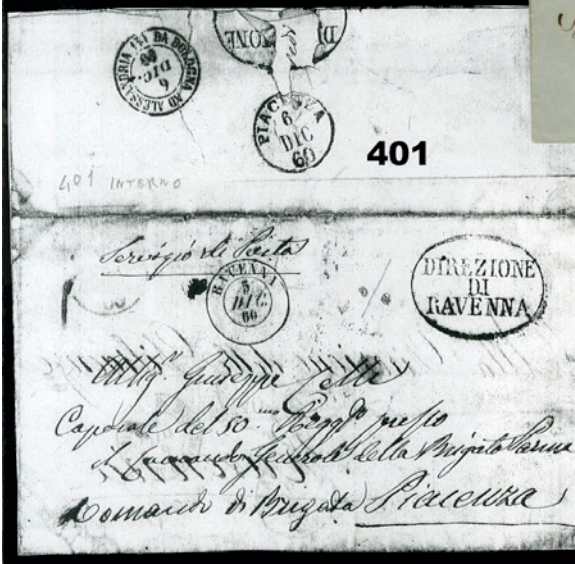 DA BOLOGNA AD ALESSANDRIA (2)
6
DIC
60
DI
ZIONE
PIACENZA
6
DIC
60
401
401 INTERNO
Servizio di Posta
RAVENNA
5
DIC
60
DIREZIONE
DI
RAVENNA
Giuseppe
Caporale del 50.mo Regg.to presso
il Comando Generale della Brigata Parma
Comando di Brigata Piacenza